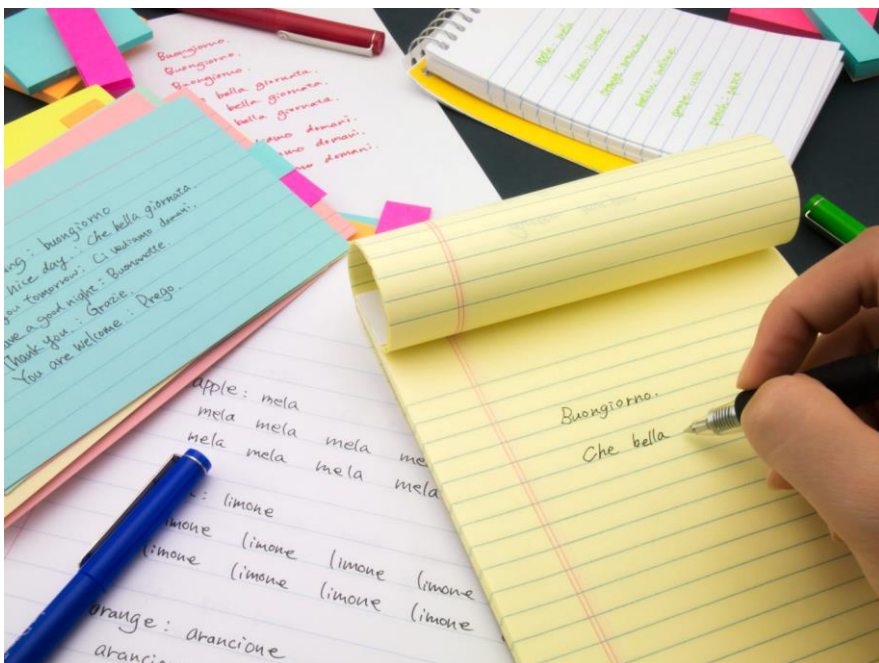 Buongiorno.
Buongiorno.
Buongiorno.
bella giornata.
bella giornata.
bella giornata.
domani.
domani.
domani.
apple : mela
lemon : limone
orange : arancione
buongiorno
nice day : Che bella giornata.
you tomorrow : Ci vediamo domani.
a good night : Buonanotte.
Thank you : Grazie.
You are welcome : Prego.
apple : mela
mela mela mela
mela mela mela mela
: limone
limone limone limone
limone limone limone
orange : arancione
Buongiorno.
Che bella